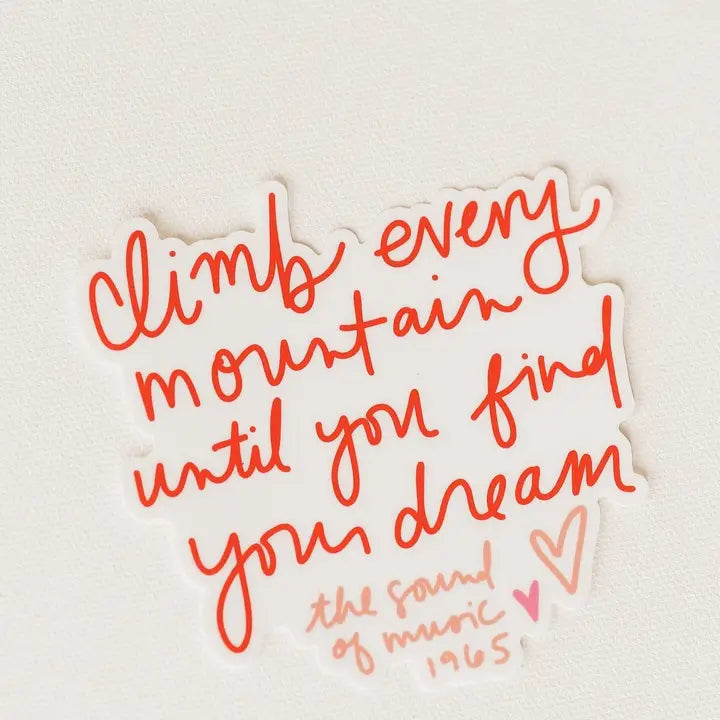 climb every
mountain
until you find
your dream
the sound
of music
1965